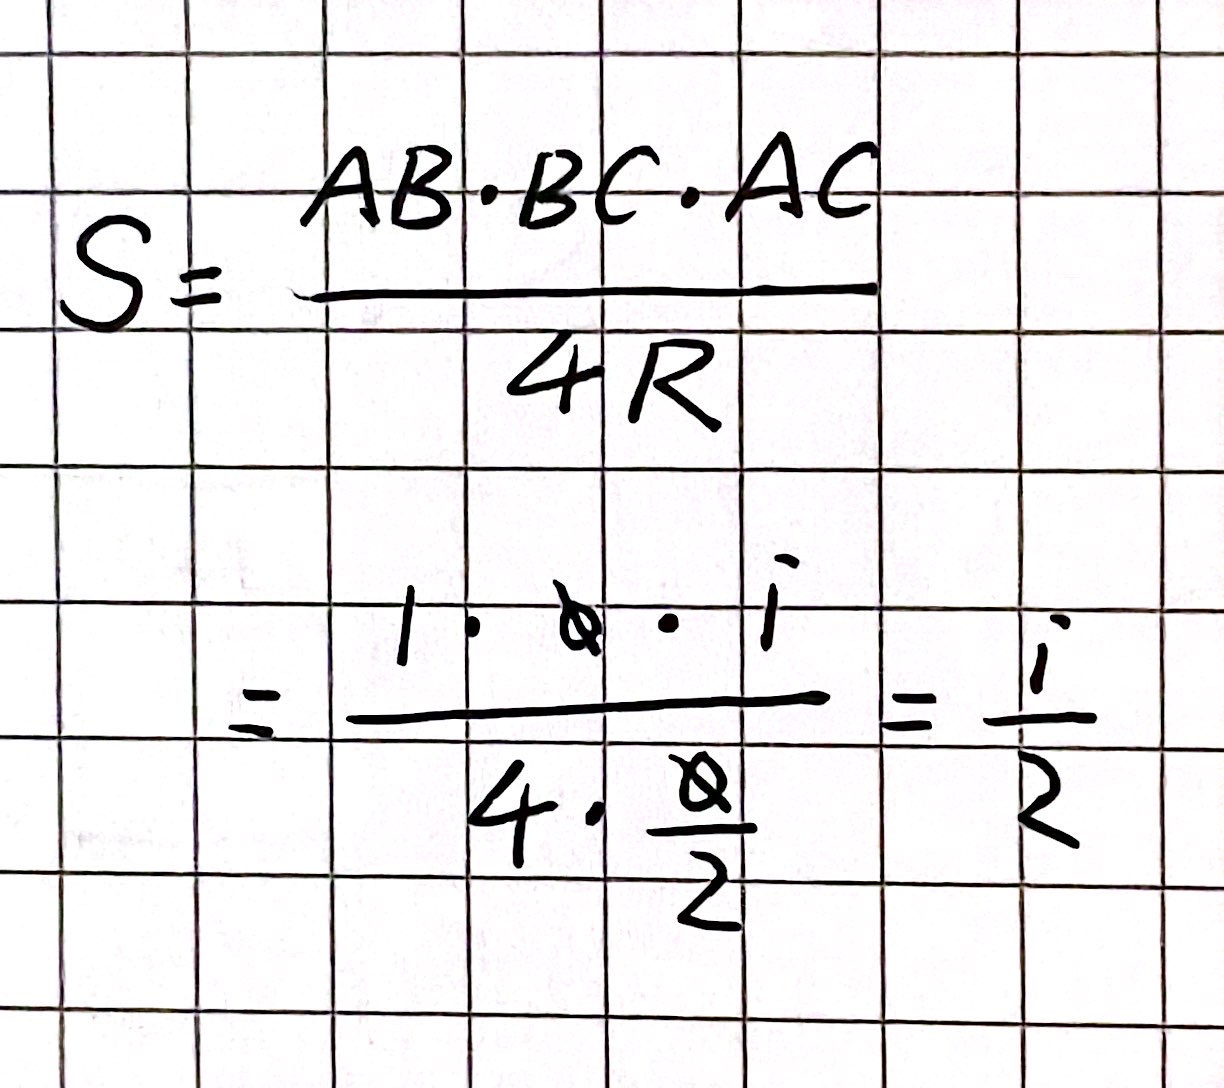 S = AB·BC·AC / 4R
= 1·0·i / 4·0/2 = i/2